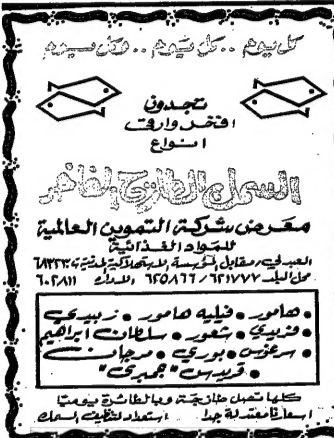 كل يوم .. كل يوم .. وكل يوم
تجدون
افخر وارقى
انواع
السمك الطازج الفاخر
معرض شركة التموين العالمية
للمواد الغذائية
العبدلي، مقابل المؤسسة الاستهلاكية المدنية ت ٦٨٣٢٣٠
محل البلد ٦٢١٧٧٧/٦٢٥٨٦٦ الادارة ٦٠٢٨١١
• هامور • فيليه هامور • زبيدي
• فريدي • شعور • سلطان ابراهيم
• سرغوس • بوري • مرجان
• قريدس "جمبري"
كلها تصل طازجة وبالطائرة يوميا
اسعارنا معتدلة جدا .. استعداد لتنظيف السمك